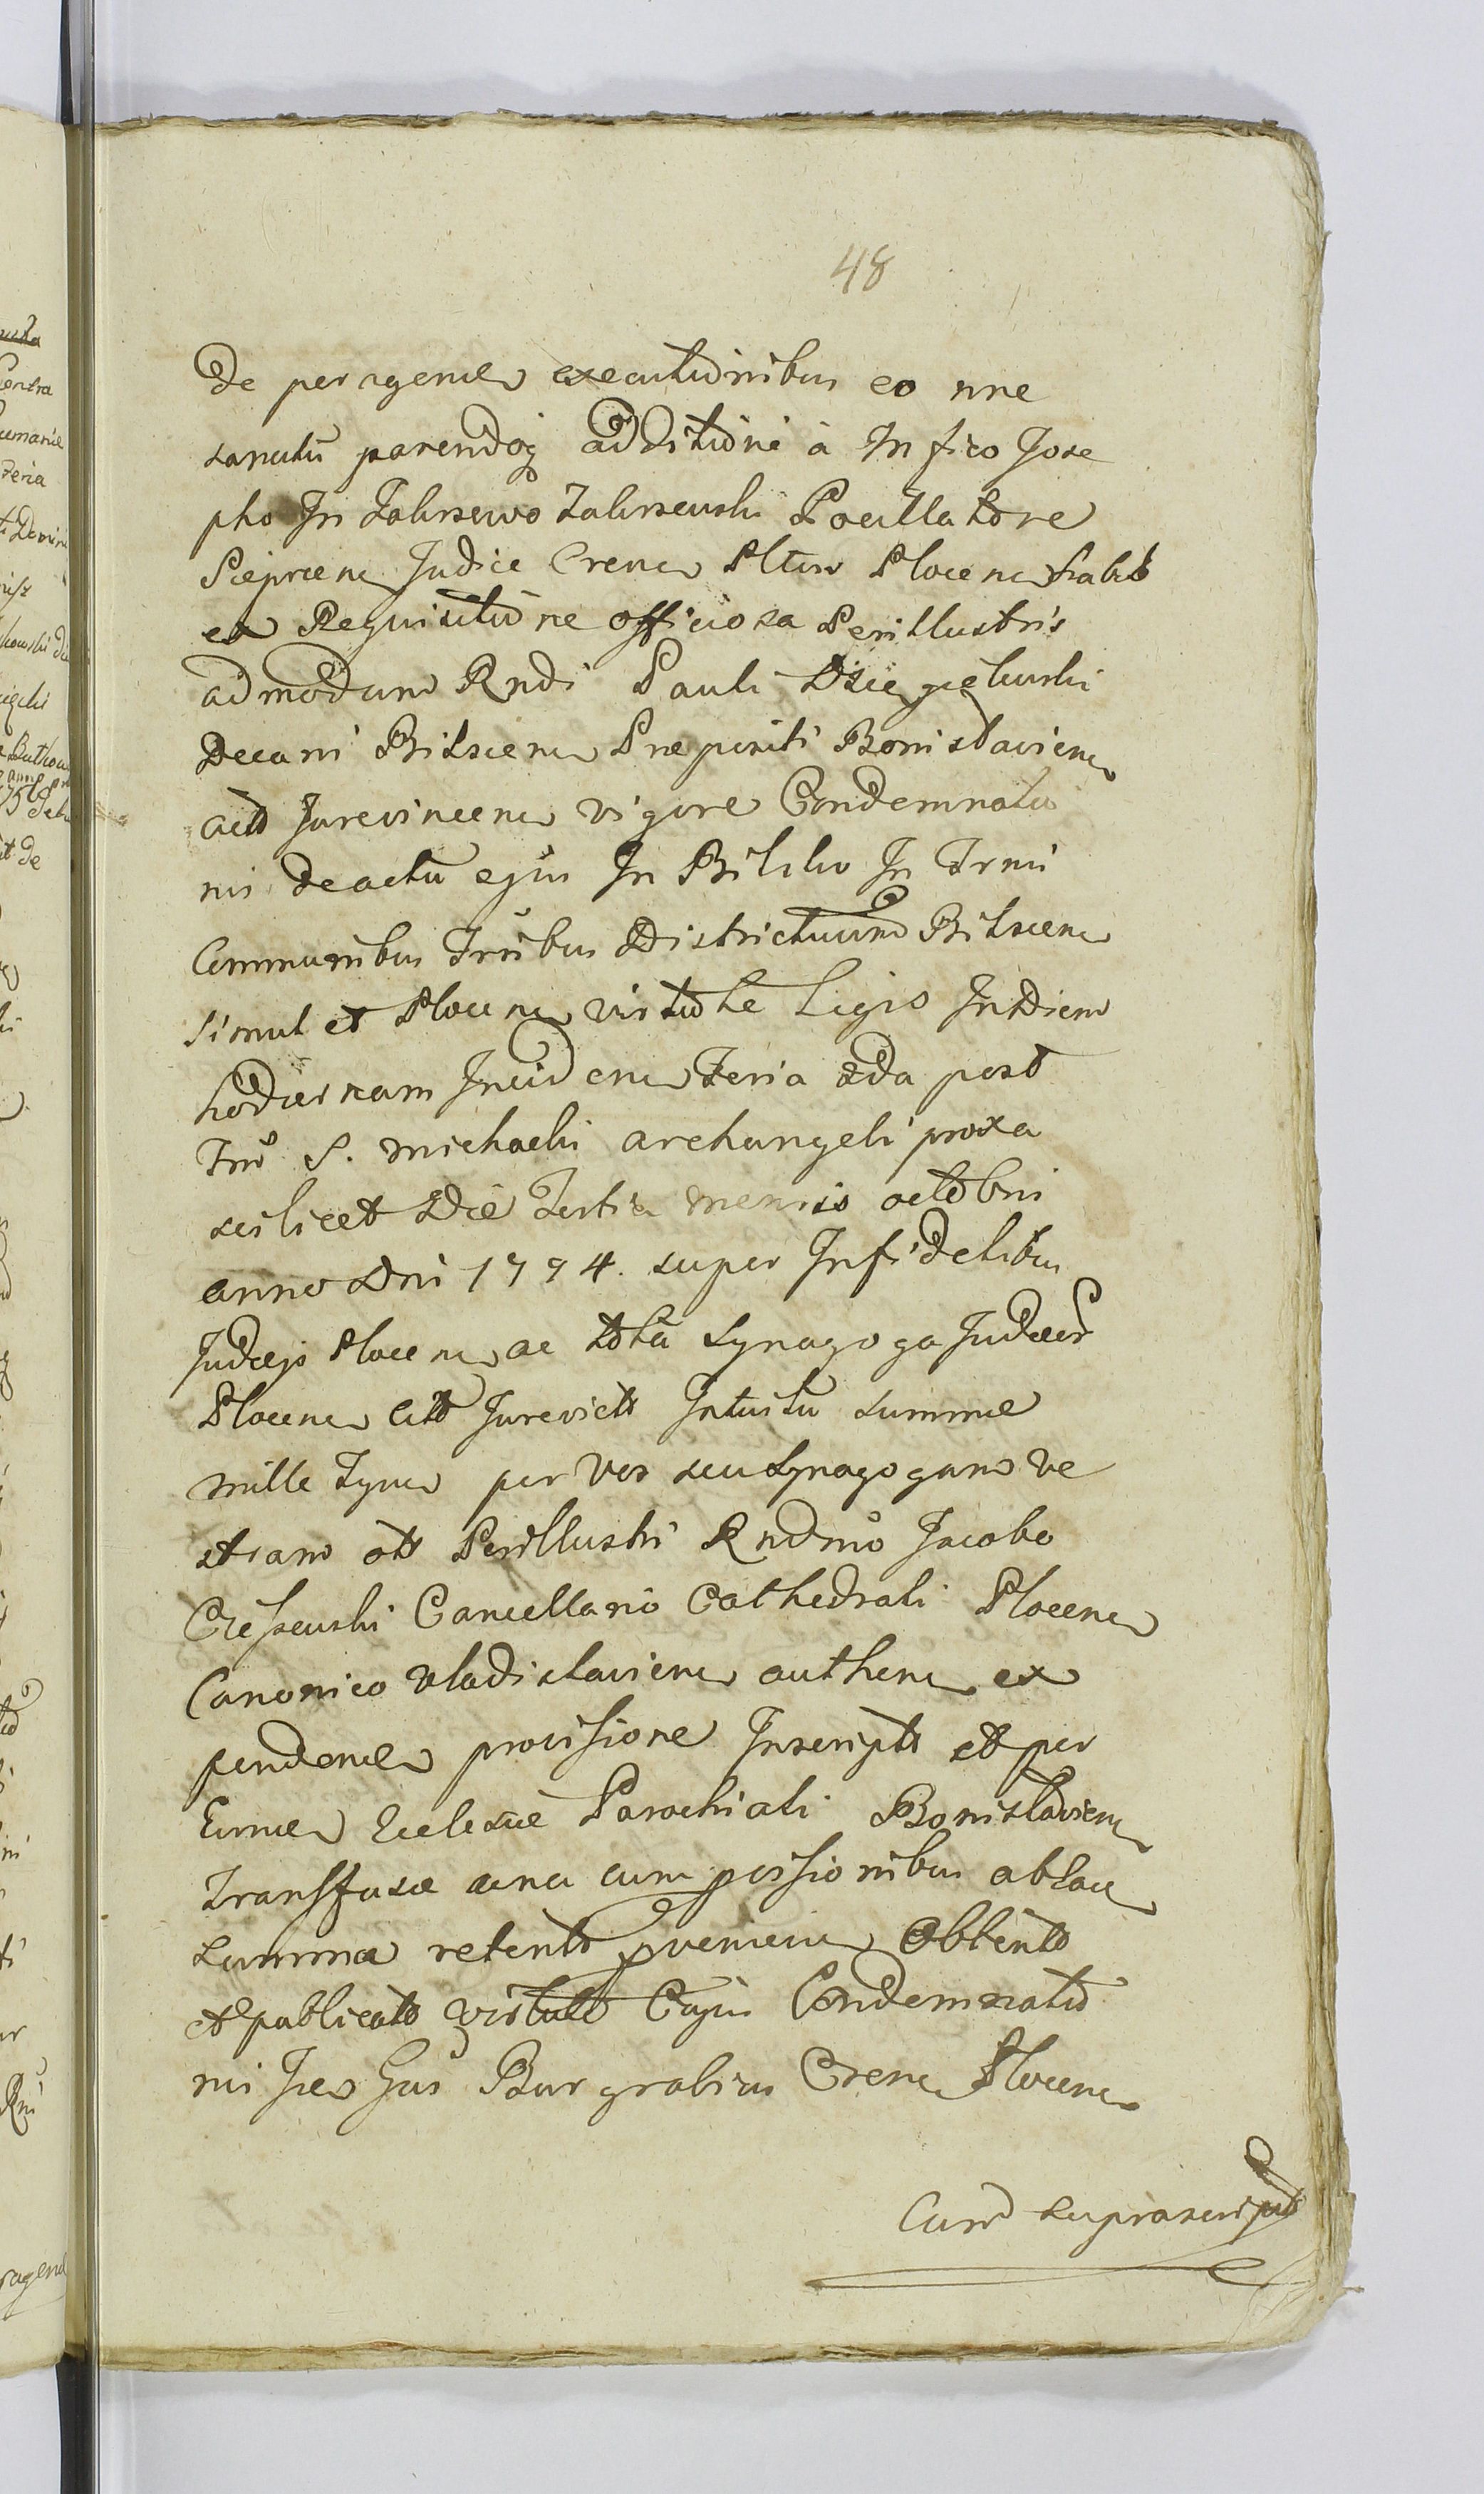 48
De peragenes executionibus eo nne
sanutu parendoq additione à Mfico Jose
pho In Zaluszewo Zaluszewski Pocillatore
Sieprcens Judice Crens Pltiu Plocens habit
ex Requisitione officiosa Perillustris
admodum Rndi Pauli Dziegielewski
Decani Bilscens Prepositi Bonislaviens
actt Jurevincens vigore Condemnatio
nis de actu ejus In Bilsko In Trnis
Communibus Trribus Districtuum Bilscens
simul et Plocens virtute Legis In Diem
hodiernam Incidens Feria 2da post
Fm S. Michaelis Archangeli proxa
scilicet Die Tertia mensis octobris
anno Dni 1774. super Infidelibus
Judæis Plocens ac tota Synagoga Judæor
Plocens citt Jurevictt Intuitu summe
mille Tynes per Vos seu Synagogam ve
stram ott Perillustri Rndmo Jacobo
Cieszewski Cancellario Cathedrali Plocens
Canonico Vladislaviens authens ex
pendenes provisione Inscriptt et per
Eunes Ecclesiæ Parochiali Bonislaviens
transffusæ una cum provisionibus ab eace
summa retentt proveniens Obtentt
et publicatt virtute Cujus Condemnatio
nis Jdes Gsus Burgrabius Crens Plocens
Cum suprascriptt